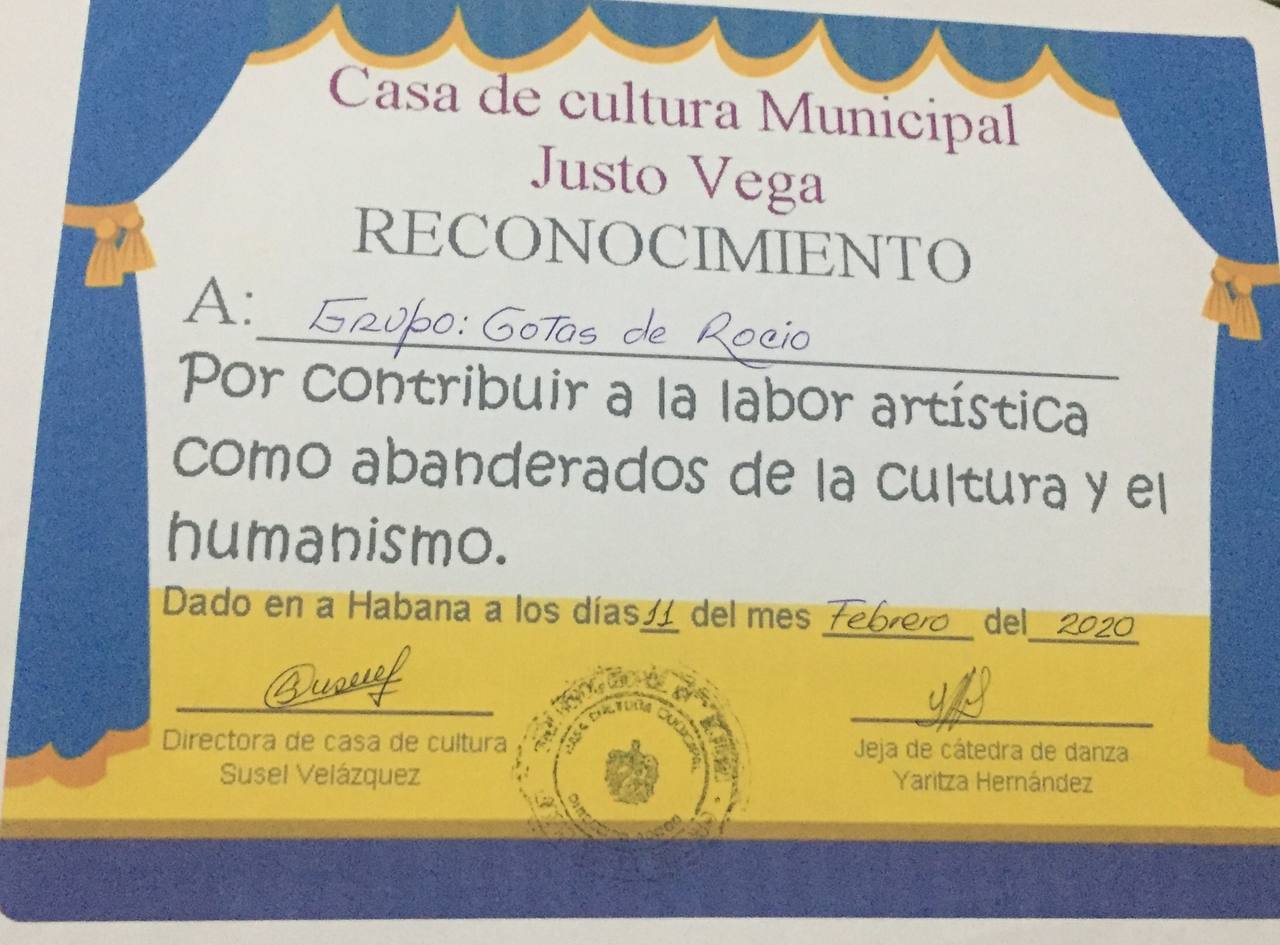 Casa de cultura Municipal
Justo Vega
RECONOCIMIENTO
A: Grupo: Gotas de Rocio
Por contribuir a la labor artística
como abanderados de la cultura y el
humanismo.
Dado en a Habana a los días 11 del mes Febrero del 2020
Susel
Directora de casa de cultura
Susel Velázquez
Jeja de cátedra de danza
Yaritza Hernández
CASA CULTURA